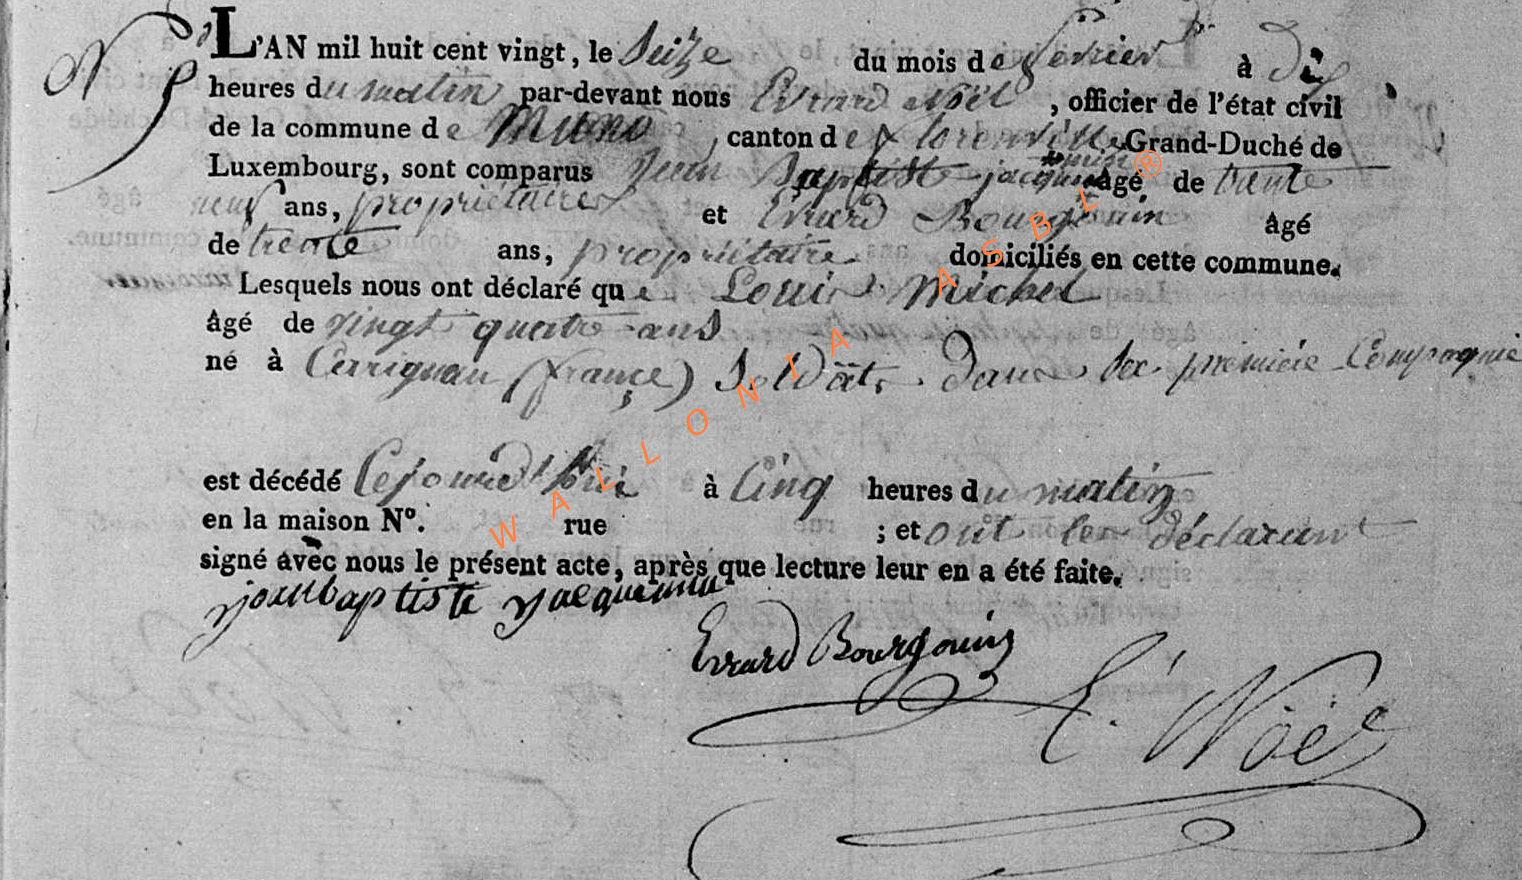 L'AN mil huit cent vingt, le Seize du mois de fevrier à Dix
heures du matin par-devant nous Evrard Noël, officier de l'état civil
de la commune de Muno, canton de florenville Grand-Duché de
Luxembourg, sont comparus Jean Baptiste jacquemin âgé de trente
neuf ans, propriétaire et Evrard Bourgouin âgé
de trente ans, propriétaire domiciliés en cette commune.
Lesquels nous ont déclaré que Louis Michel
âgé de vingt quatre ans
né à Carrignan (françe) Soldât, dans la première Compagnie
est décédé Cejourd'hui à Cinq heures du matin
en la maison N°. rue ; et ont les déclarant
signé avec nous le présent acte, après que lecture leur en a été faite.
jeanbaptiste jacquemin
Evrard Bourgouin
E. Noël
WALLONIA ASBL ®